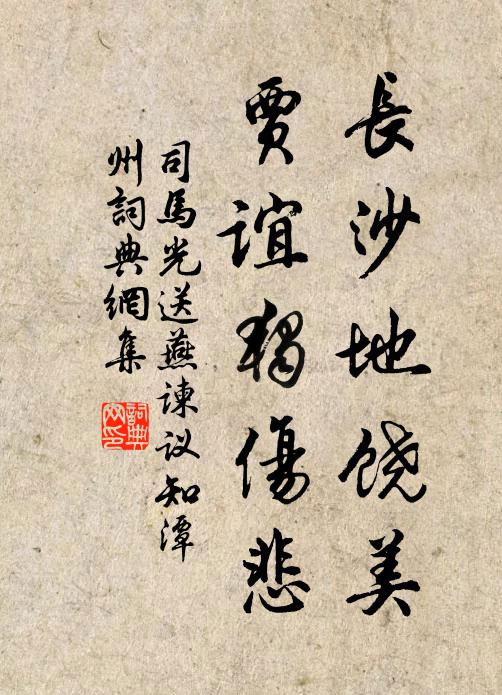 長沙地饶美
賈誼獨傷悲
司馬光送燕諫议知潭
州詞典網集
詞典网印